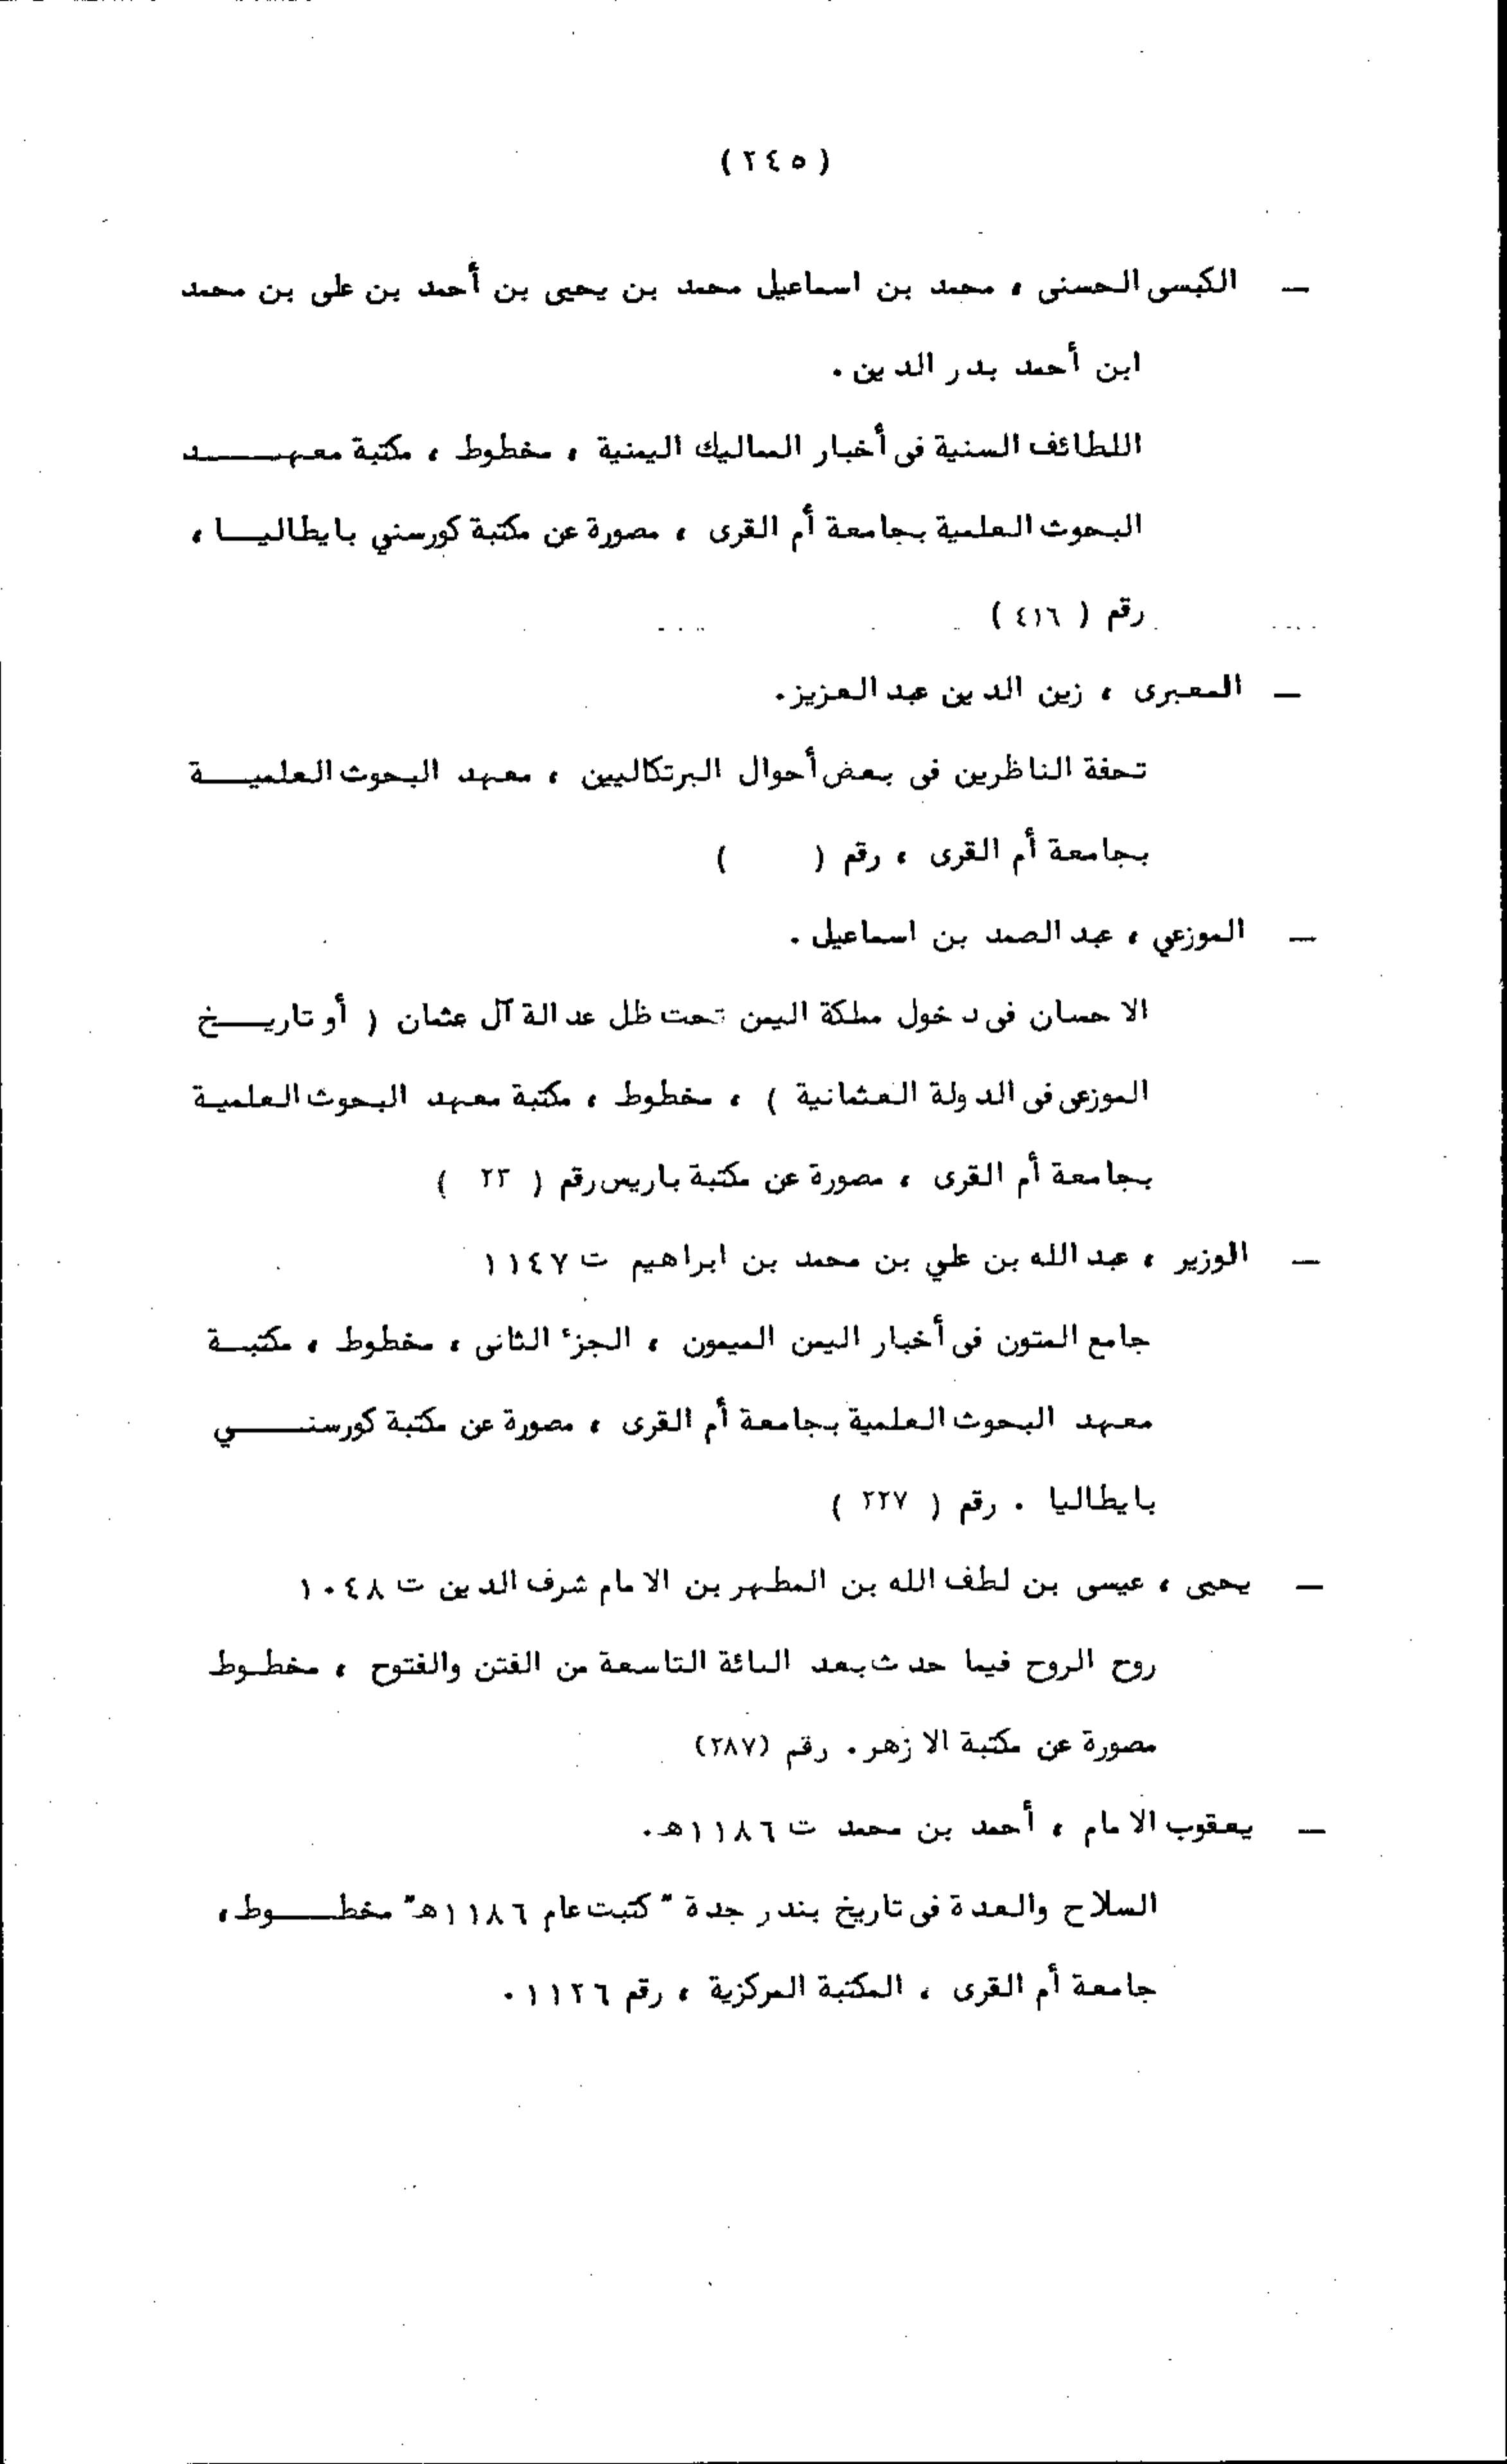 (٢٤٥)
ـ الكبسى الحسنى ، محمد بن اسماعيل محمد بن يحيى بن أحمد بن على بن محمد
ابن أحمد بدر الدين .
اللطائف السنية فى أخبار الممالیك اليمنية ، مخطوط ، مكتبة معهـــد
البحوث العلمية بجامعة أم القرى ، مصورة عن مكتبة كورسني بايطاليـا ،
رقم ( ٤١٦ )
ـ المعبرى ، زين الدين عبد العزيز.
تحفة الناظرين فى بعض أحوال البرتكاليين ، معهد البحوث العلميـــة
بجامعة أم القرى ، رقم ( )
ـ الموزعي ، عبد الصمد بن اسماعيل .
الاحسان فى دخول مملكة اليمن تحت ظل عدالة آل عثمان ( أو تاريـــخ
الموزعى فى الدولة العثمانية ) ، مخطوط ، مكتبة معهد البحوث العلميـة
بجامعة أم القرى ، مصورة عن مكتبة باريس رقم ( ٢٣ )
ـ الوزير ، عبد الله بن علي بن محمد بن ابراهيم ت ١١٤٧
جامع المتون فى أخبار اليمن الميمون ، الجزء الثانى ، مخطوط ، مكتبـة
معهد البحوث العلمية بجامعة أم القرى ، مصورة عن مكتبة كورسنــــي
بايطاليا . رقم ( ٢٢٧ )
ـ يحيى ، عيسى بن لطف الله بن المطهر بن الامام شرف الدين ت ١٠٤٨
روح الروح فيما حدث بعد المائة التاسعة من الفتن والفتوح ، مخطـوط
مصورة عن مكتبة الازهر . رقم (٢٨٧)
ـ يعقوب الامام ، أحمد بن محمد ت ١١٨٦هـ.
السلاح والعدة فى تاريخ بندر جدة " كتبت عام ١١٨٦هـ" مخطـــوط ،
جامعة أم القرى ، المكتبة المركزية ، رقم ١١٢٦ .